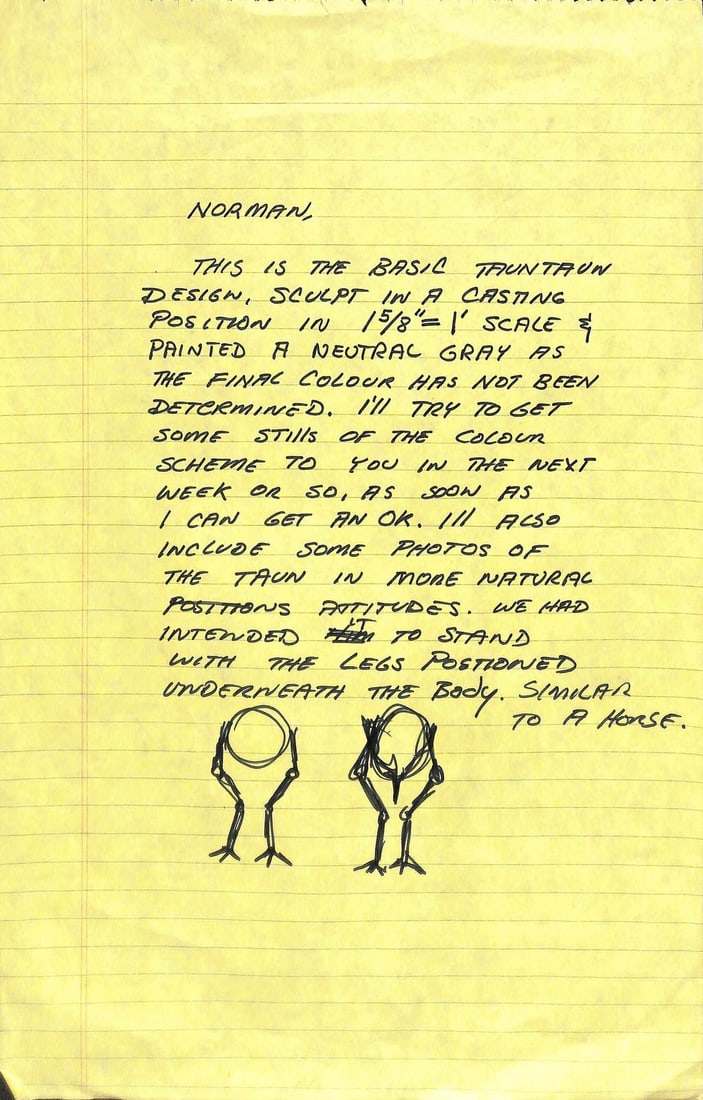 NORMAN,
THIS IS THE BASIC TAUNTAUN
DESIGN, SCULPT IN A CASTING
POSITION IN 1 5/8" = 1' SCALE &
PAINTED A NEUTRAL GRAY AS
THE FINAL COLOUR HAS NOT BEEN
DETERMINED. I'll TRY TO GET
SOME STIlls OF THE COLOUR
SCHEME TO YOU IN THE NEXT
WEEK OR SO, AS SOON AS
I CAN GET AN OK. I'll ALSO
INCLUDE SOME PHOTOS OF
THE TAUN IN MORE NATURAL
POSITIONS ATTITUDES. WE HAD
INTENDED IT TO STAND
WITH THE LEGS POSTIONED
UNDERNEATH THE BODY. SIMILAR
TO A HORSE.